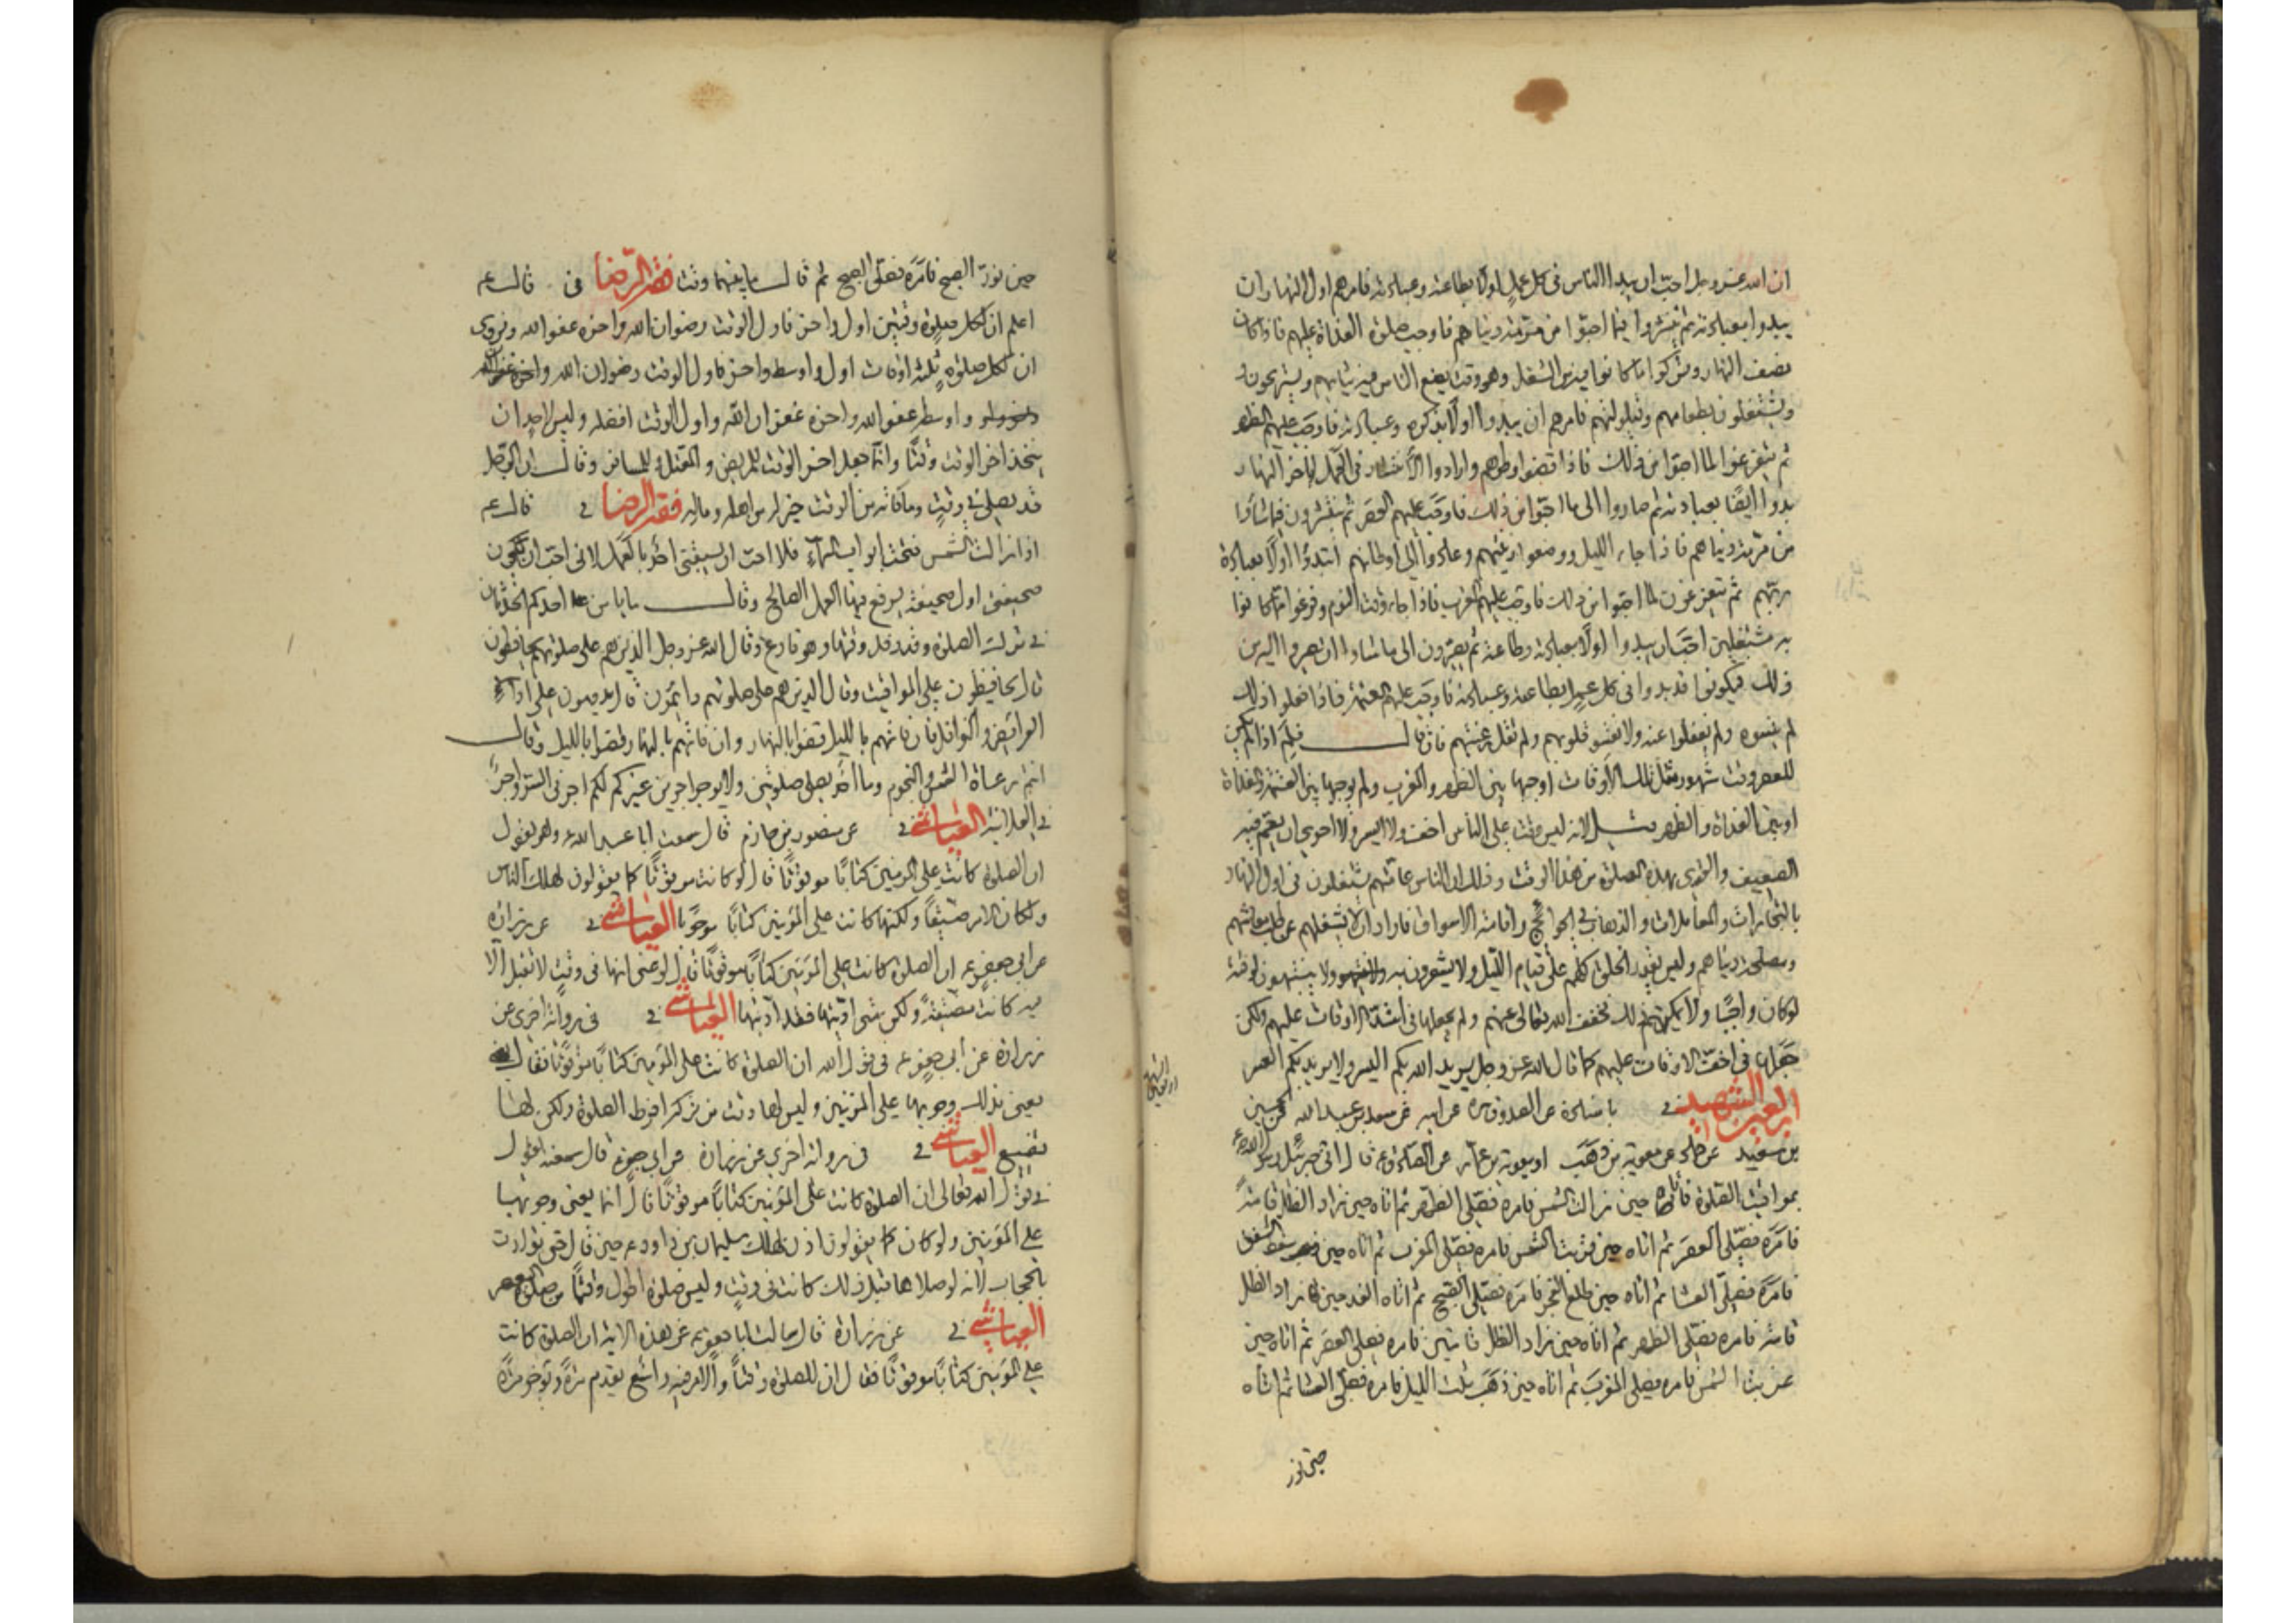 ان الله عز وجل احب ان يبدا الناس فى كل عمل اولا بطاعته وعبادته فامرهم اول النهار ان
يبدوا بعبادته ثم ينتشروا فيما احبوا من مرمة دنياهم فاوجب صلوة الغداة عليهم فاذا كان
نصف النهار وتركوا ما كانوا فيه من الشغل وهو وقت يضع الناس فيه ثيابهم ويستريحون
ويشتغلون بطعامهم وقيلولتهم فامرهم ان يبدوا اولا بذكره وعبادته فاوجب عليهم الظهر
ثم يتفرغوا لما احبوا من ذلك فاذا قضوا وطرهم وارادوا الانتشار فى العمل لآخر النهار
بدوا ايضا بعبادته ثم صاروا الى ما احبوا من ذلك فاوجب عليهم العصر ثم ينتشرون فيما شاؤا
من مرمة دنياهم فاذا جاء الليل ووضعوا زينتهم وعادوا الى اوطانهم ابتدؤا اولا بعبادة
ربهم ثم يتفرغون لما احبوا من ذلك فاوجب عليهم المغرب فاذا جاء وقت النوم وفرغوا مما كانوا
به مشتغلين احب ان يبدوا اولا بعبادته وطاعته ثم يصيرون الى ما شاوا ان يصيروا اليه من
ذلك فيكونوا قد بدوا فى كل عمل بطاعته وعبادته فاوجب عليهم العتمة فاذا فعلوا ذلك
لم ينسوه ولم يغفلوا عنه ولا تقسو قلوبهم ولم تقل رغبتهم فان قال فلم اذا لم يكن
للعصر وقت مشهور مثل تلك الاوقات اوجبها بين الظهر والمغرب ولم يوجبها بين العتمة والغداة
او بين الغداة والظهر قيل لانه ليس وقت على الناس اخف ولا ايسر ولا احرى ان يعم فيه
الضعيف والقوى بهذه الصلوة من هذا الوقت وذلك ان الناس عامتهم يشتغلون فى اول النهار
بالتجارات والمعاملات والذهاب فى الحوائج واقامة الاسواق فاراد ان لا يشغلهم عن طلب معاشهم
ومصلحة دنياهم وليس يقدر الخلق كلهم على قيام الليل ولا يشعرون به ولا ينتبهون لوقته
لو كان واجبا ولا يمكنهم ذلك فخفف الله تعالى عنهم ولم يجعلها فى اشد الاوقات عليهم ولكن
جعلها فى اخف الاوقات عليهم كما قال الله عز وجل يريد الله بكم اليسر ولا يريد بكم العسر
اربعين الشهيد باسناده عن الصدوق ره عن ابيه عن سعد بن عبد الله عن الحسين
بن سعيد عن حماد عن معوية بن وهب او معوية بن عمار عن الصادق ع قال اتى جبرئيل رسول الله ص
بمواقيت الصلوة فأتاه حين زالت الشمس فامره فصلى الظهر ثم اتاه حين زاد الظل قامة
فامره فصلى العصر ثم اتاه حين غربت الشمس فامره فصلى المغرب ثم اتاه حين سقط الشفق
فامره فصلى العشا ثم اتاه حين طلع الفجر فامره فصلى الصبح ثم اتاه الغد حين زاد الظل
قامة فامره فصلى الظهر ثم اتاه حين زاد الظل قامتين فامره فصلى العصر ثم اتاه حين
غربت الشمس فامره فصلى المغرب ثم اتاه حين ذهب ثلث الليل فامره فصلى العشا ثم اتاه
حين نور
حين نور الصبح فامره فصلى الصبح ثم قال ما بينهما وقت فقه الرضا فى قال ع
اعلم ان لكل صلوة وقتين اول واخر فاول الوقت رضوان الله واخره عفو الله ونروى
ان لكل صلوة ثلثة اوقات اول واوسط واخر فاول الوقت رضوان الله
واوسطه عفو الله واخره غفران الله واول الوقت افضله وليس لاحد ان
يتخذ اخر الوقت وقتا وانما جعل اخر الوقت للمريض والمعتل وللمسافر وقال ان الرجل
قد يصلى فى وقت وما فاته من الوقت خير له من اهله وماله فقه الرضا فى قال ع
اذا زالت الشمس فتحت ابواب السماء فلا احب ان يسبقنى احد بالعمل لانى احب ان تكون
صحيفتى اول صحيفة يرفع فيها العمل الصالح وقال ما يامن احدكم الحدثان
فى ترك الصلوة وقد دخل وقتها وهو فارغ وقال الله عز وجل الذين هم على صلوتهم يحافظون
قال يحافظون على المواقيت وقال الذين هم على صلوتهم دائمون قال يديمون على اداء
الفرائض والنوافل فان فاتهم بالليل قضوا بالنهار وان فاتهم بالنهار قضوا بالليل وقال
انتم رعاة الشمس والنجوم وما احد يصلى صلوتين ولا يوجر اجرين غيركم لكم اجر فى السر واجر
فى العلانية العياشى فى عن منصور بن حازم قال سمعت ابا عبد الله ع وهو يقول
ان الصلوة كانت على المؤمنين كتابا موقوتا قال لو كانت موقوتا كما يقولون لهلك الناس
ولكان الامر ضيقا ولكنها كانت على المؤمنين كتابا موجوبا العياشى فى عن زرارة
عن ابى جعفر ع ان الصلوة كانت على المؤمنين كتابا موقوتا قال لو عنى انها فى وقت لا تقبل الا
فيه كانت مصيبة ولكن متى اديتها فقد اديتها العياشى فى فى رواية اخرى عن
زرارة عن ابى جعفر ع فى قول الله ان الصلوة كانت على المؤمنين كتابا موقوتا فقال
يعنى بذلك وجوبها على المؤمنين وليس لها وقت من تركه افرط الصلوة ولكن لها
تضييع العياشى فى فى رواية اخرى عن زرارة عن ابى جعفر ع قال سمعته يقول
فى قول الله تعالى ان الصلوة كانت على المؤمنين كتابا موقوتا قال انما يعنى وجوبها
على المؤمنين ولو كان كما يقولون اذن لهلك سليمان بن داود ع حين قال حتى توارت
بالحجاب لانه لو صلاها قبل ذلك كانت فى وقت وليس صلوة اطول وقتا من صلوة العصر
العياشى فى عن زرارة قال سالت ابا جعفر ع عن هذه الاية ان الصلوة كانت
على المؤمنين كتابا موقوتا فقال ان للصلوة وقتا والامر فيه واسع يقدم مرة ويؤخر مرة